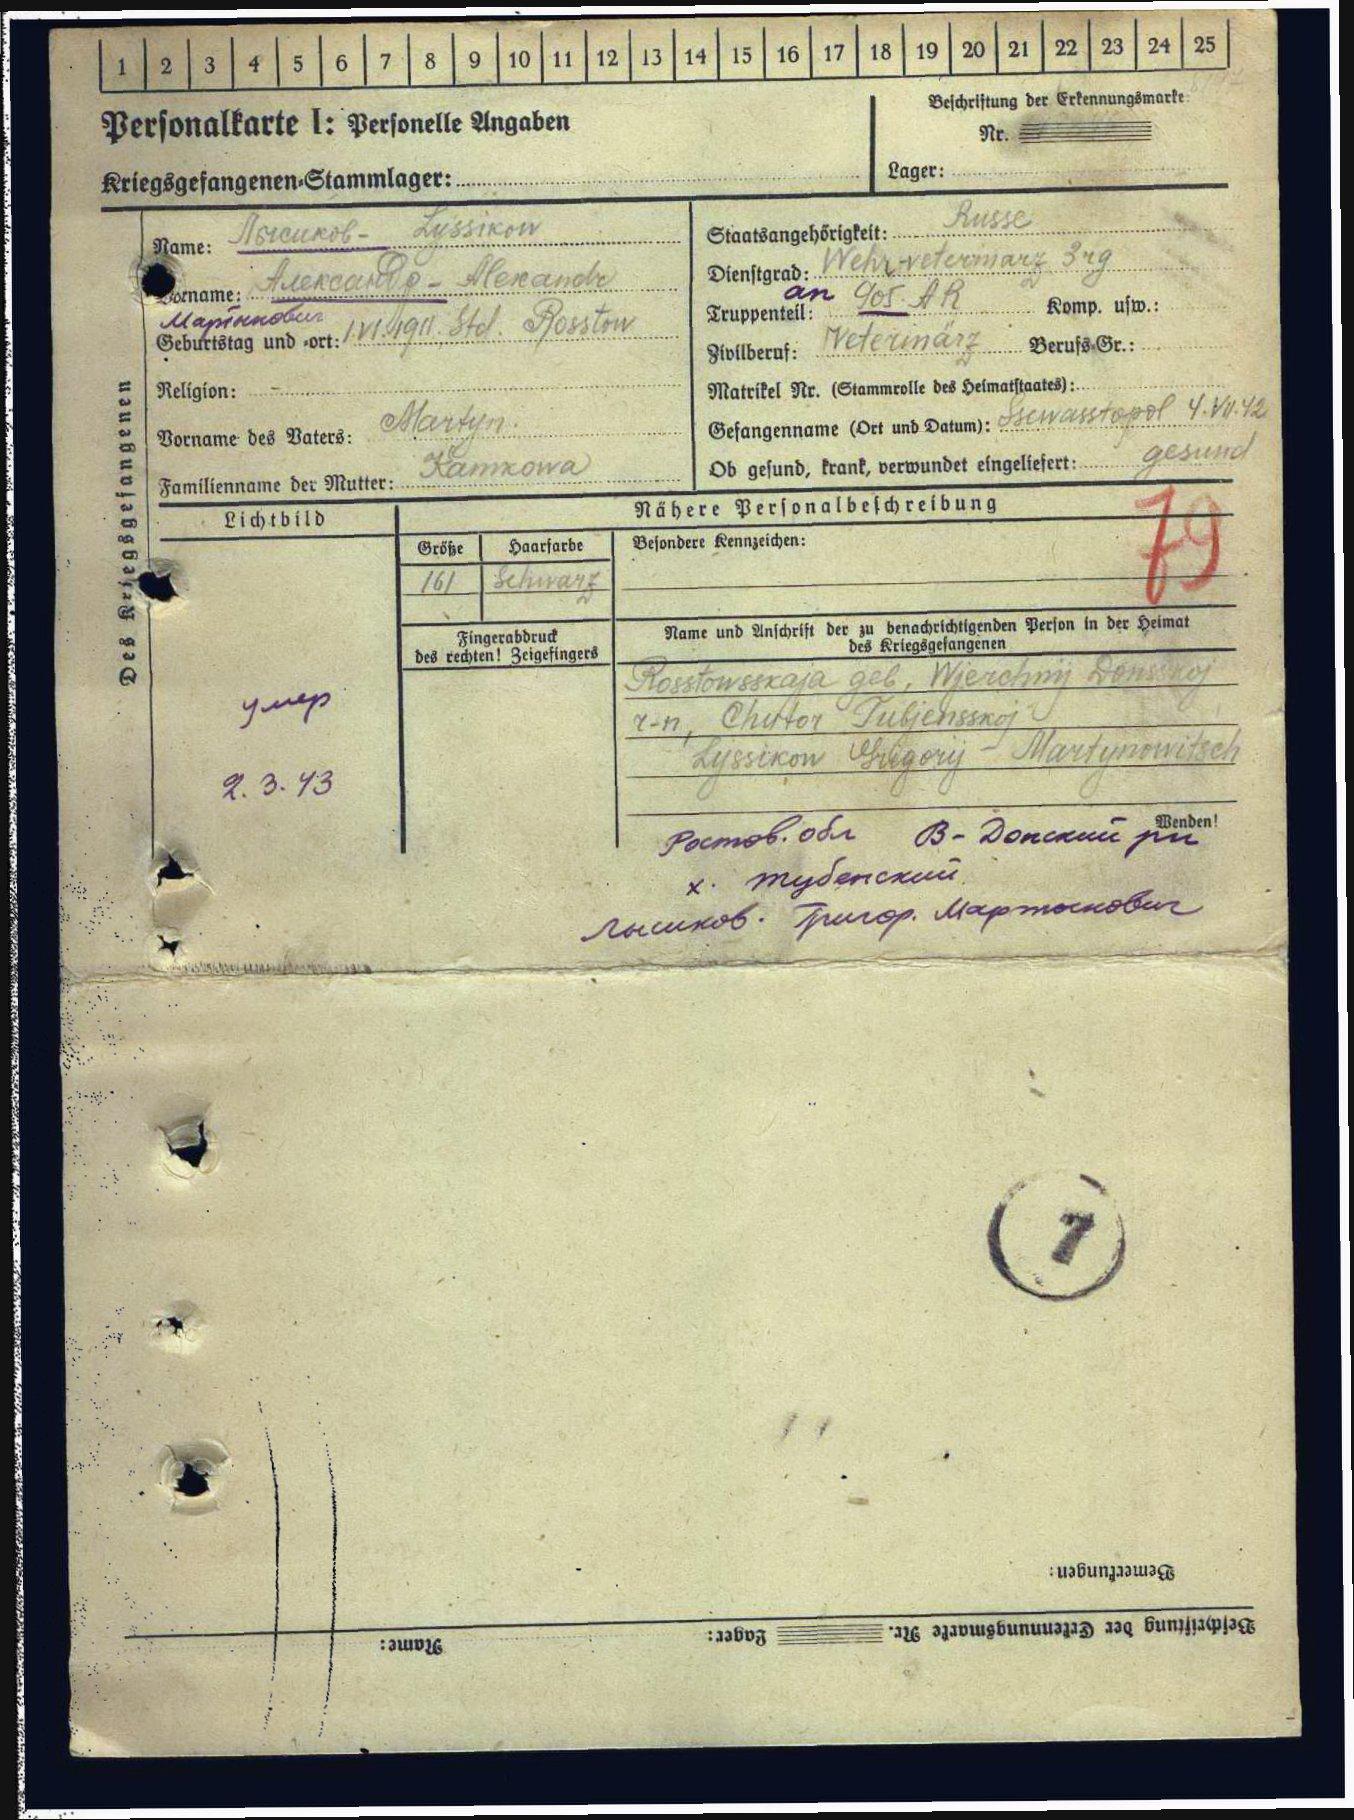 1 2 3 4 5 6 7 8 9 10 11 12 13 14 15 16 17 18 19 20 21 22 23 24 25
Personalkarte I: Personelle Angaben
Beschriftung der Erkennungsmarke
Nr.
Kriegsgefangenen-Stammlager:
Lager:
Des Kriegsgefangenen
Name: Лысиков - Lyssikow
Vorname: Александр - Alexandr
Мартынович
Geburtstag und -ort: 1.VI.1911. Std. Rosstow
Religion: -
Vorname des Vaters: Martyn.
Familienname der Mutter: Kamkowa
Staatsangehörigkeit: Russe
Dienstgrad: Wehrveterinärz 3rg
Truppenteil: ап 905. AR Komp. usw.:
Zivilberuf: Veterinärz Berufs-Gr.:
Matrikel Nr. (Stammrolle des Heimatstaates):
Gefangenname (Ort und Datum): Ssewasstopol 4.VII.42
Ob gesund, krank, verwundet eingeliefert: gesund
Lichtbild
Nähere Personalbeschreibung
79
Größe Haarfarbe Besondere Kennzeichen:
161 Schwarz
Fingerabdruck
des rechten! Zeigefingers
Name und Anschrift der zu benachrichtigenden Person in der Heimat
des Kriegsgefangenen
Rosstowsskaja geb, Wjerchnij Donsskoj
r-n, Chutor Tubjensskoj
Lyssikow Grigorij - Martynowitsch
умер
2.3.43
Wenden!
Ростов. обл В-Донский рн
х. Тубенский
Лысиков. Григор. Мартынович
7
Bemerkungen:
Beschriftung der Erkennungsmarke Nr. Lager: Name: